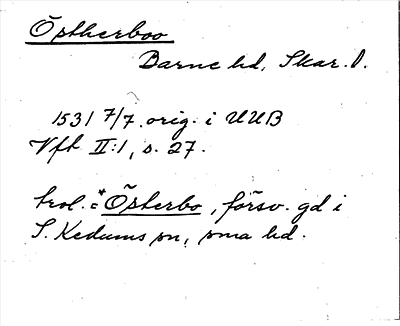 Õptherboo
Barne hd, Skar. l.
1531 7/7. orig. i UUB
Vft II:1, s. 27.
trol. = *Österbo, försv. gd i
S. Kedums sn, sma hd.